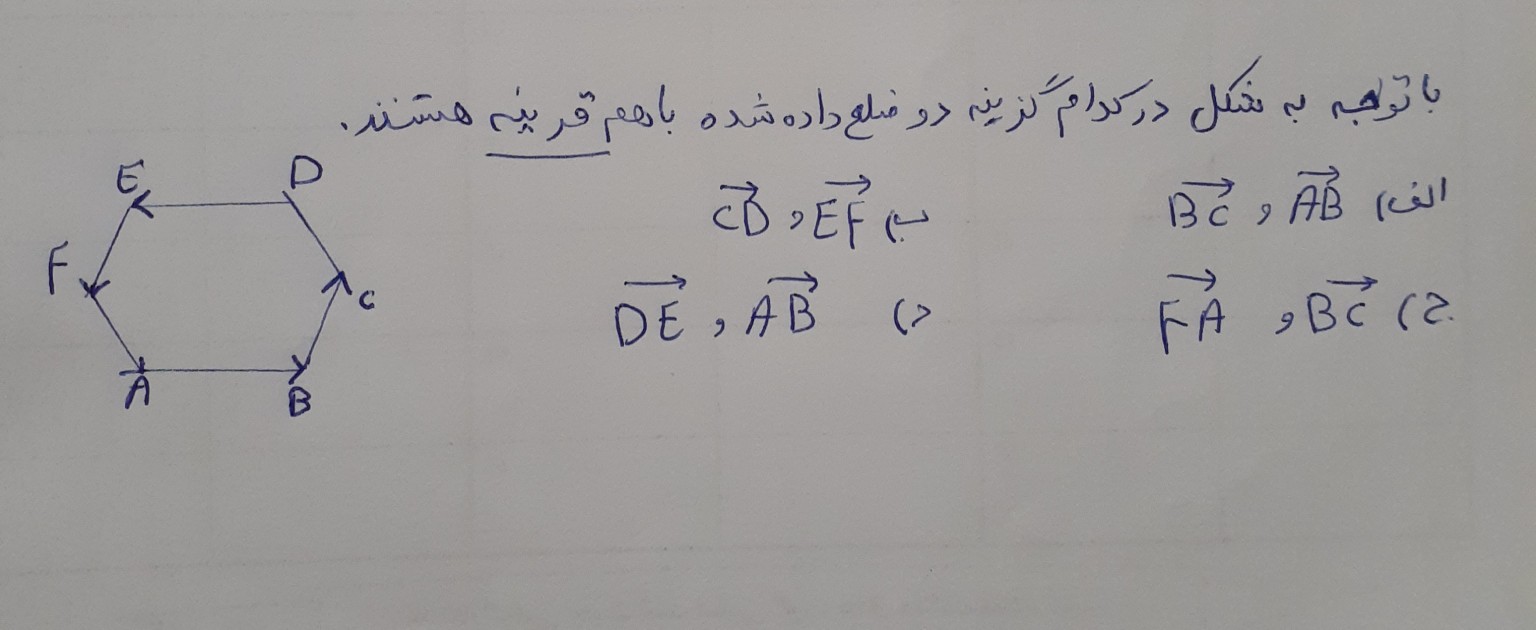 با توجه به شکل در کدام گزینه دو ضلع داده شده با هم قرینه هستند.
الف) AB و BC ب) EF و CD
ج) BC و FA د) AB و DE
E D
F C
A B